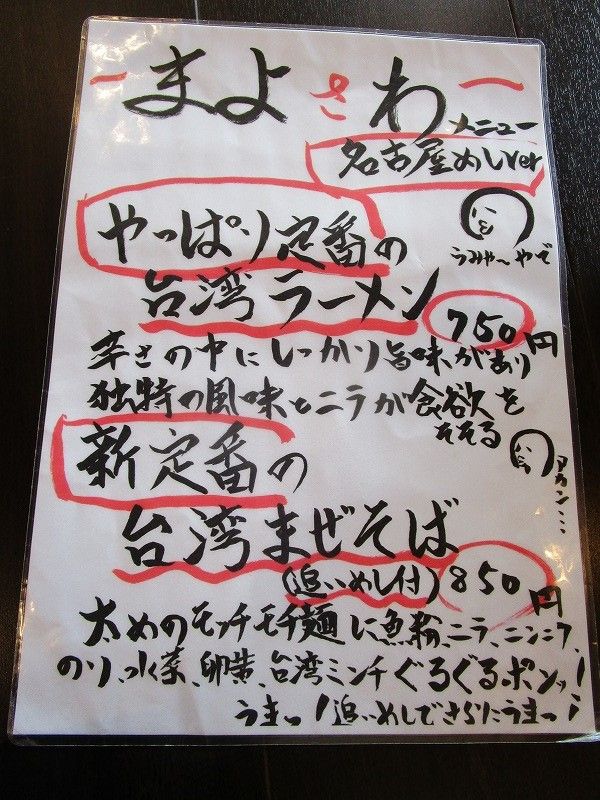 まよさわ
メニュー
名古屋めしver
うみゃ〜やで
やっぱり定番の
台湾ラーメン
750円
辛さの中にしっかり旨味があり
独特の風味とニラが食欲を
そそる
アカン…
新定番の
台湾まぜそば
(追いめし付) 850円
太めのモッチモチ麺に魚粉、ニラ、ニンニク、
のり、水菜、卵黄、台湾ミンチぐるぐるポンッ!
うまっ!追いめしでさらにうまっ!